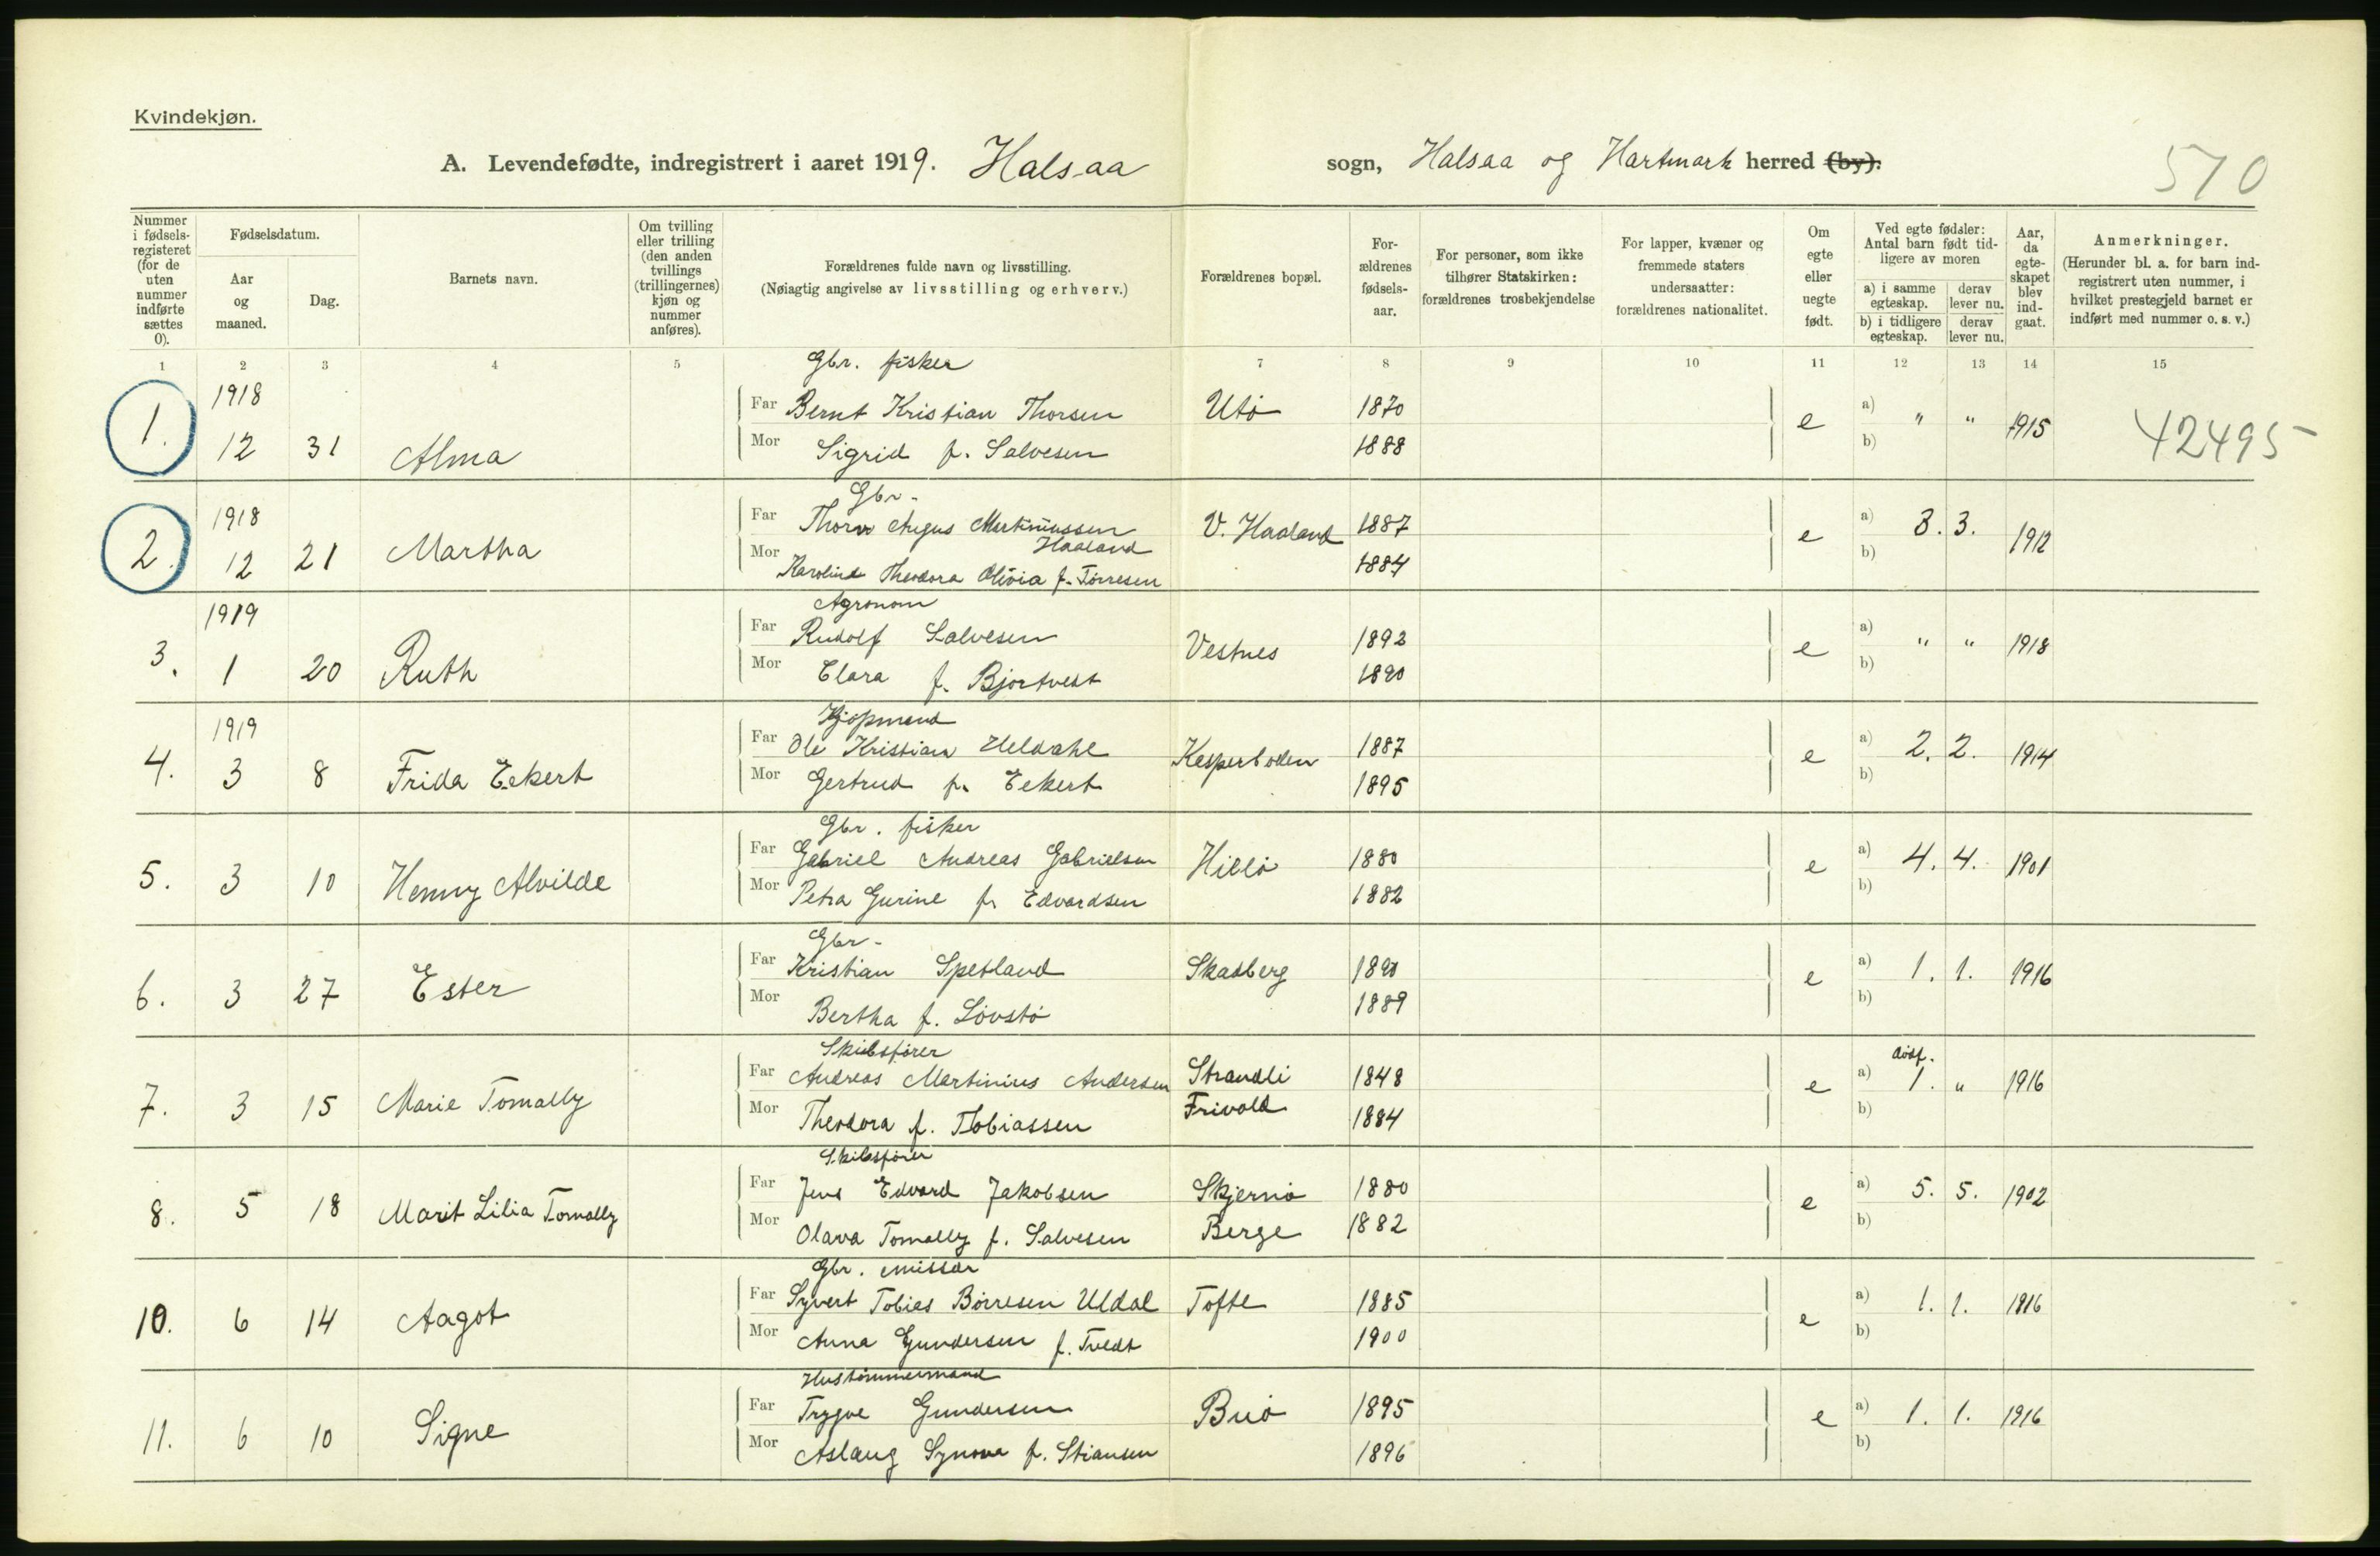 Kvindekjøn.
A. Levendefødte, indregistrert i aaret 1919. Halsaa sogn, Halsaa og Hartmark herred (by).
570
Nummer i fødsels-registeret (for de uten nummer indførte sættes 0).
Fødselsdatum.
Aar og maaned.
Dag.
Barnets navn.
Om tvilling eller trilling (den anden tvillings (trillingernes) kjøn og nummer anføres).
Forældrenes fulde navn og livsstilling.
(Nøiagtig angivelse av livsstilling og erhverv.)
Forældrenes bopæl.
For-ældrenes fødsels-aar.
For personer, som ikke tilhører Statskirken: forældrenes trosbekjendelse
For lapper, kvæner og fremmede staters undersaatter: forældrenes nationalitet.
Om egte eller uegte født.
Ved egte fødsler: Antal barn født tid-ligere av moren
a) i samme egteskap. derav lever nu.
b) i tidligere egteskap. derav lever nu.
Aar, da egte-skapet blev ind-gaat.
Anmerkninger.
(Herunder bl. a. for barn ind-registrert uten nummer, i hvilket prestegjeld barnet er indført med nummer o. s. v.)
1 2 3 4 5 7 8 9 10 11 12 13 14 15
Gbr. fisker
1918
1. 12 31 Alma Far Bernt Kristian Thorsen Utö 1870 e a) " " 1915 42495
Mor Sigrid f. Salvesen 1888 b)
Gbr.
1918
2. 12 21 Martha Far Thorv Angus Martinussen Haaland V. Haaland 1887 e a) 3. 3. 1912
Mor Karoline Theodora Olivia f. Tørresen 1884 b)
Agronom
1919
3. 1 20 Ruth Far Rudolf Salvesen Vestnes 1892 e a) " " 1918
Mor Clara f. Bjortvedt 1890 b)
Kjøpmand
1919
4. 3 8 Frida Eckert Far Ole Kristian Uldahl Kasperboden 1887 e a) 2. 2. 1914
Mor Gertrud f. Eckert 1895 b)
Gbr. fisker
5. 3 10 Henny Alvilde Far Gabriel Andreas Gabrielsen Hillö 1880 e a) 4. 4. 1901
Mor Petra Gurine f. Edvardsen 1882 b)
Gbr.
6. 3 27 Ester Far Kristian Spetland Skadberg 1890 e a) 1. 1. 1916
Mor Bertha f. Lövstö 1889 b)
Skibsfører
7. 3 15 Marie Tomally Far Andreas Martinius Andersen Strandli 1848 e a) dödf. 1. " 1916
Mor Theodora f. Tobiassen Frivold 1884 b)
Skibsfører
8. 5 18 Marit Lilia Tomally Far Jens Edvard Jakobsen Skjernö 1880 e a) 5. 5. 1902
Mor Olava Tomally f. Salvesen Berge 1882 b)
Gbr. emissær
10. 6 14 Aagot Far Syvert Tobias Børresen Uldal Tofte 1885 e a) 1. 1. 1916
Mor Anna Gundersen f. Tvedt 1900 b)
Hustømmermand
11. 6 10 Signe Far Trygve Gundersen Buö 1895 e a) 1. 1. 1916
Mor Aslaug Synova f. Stiansen 1896 b)